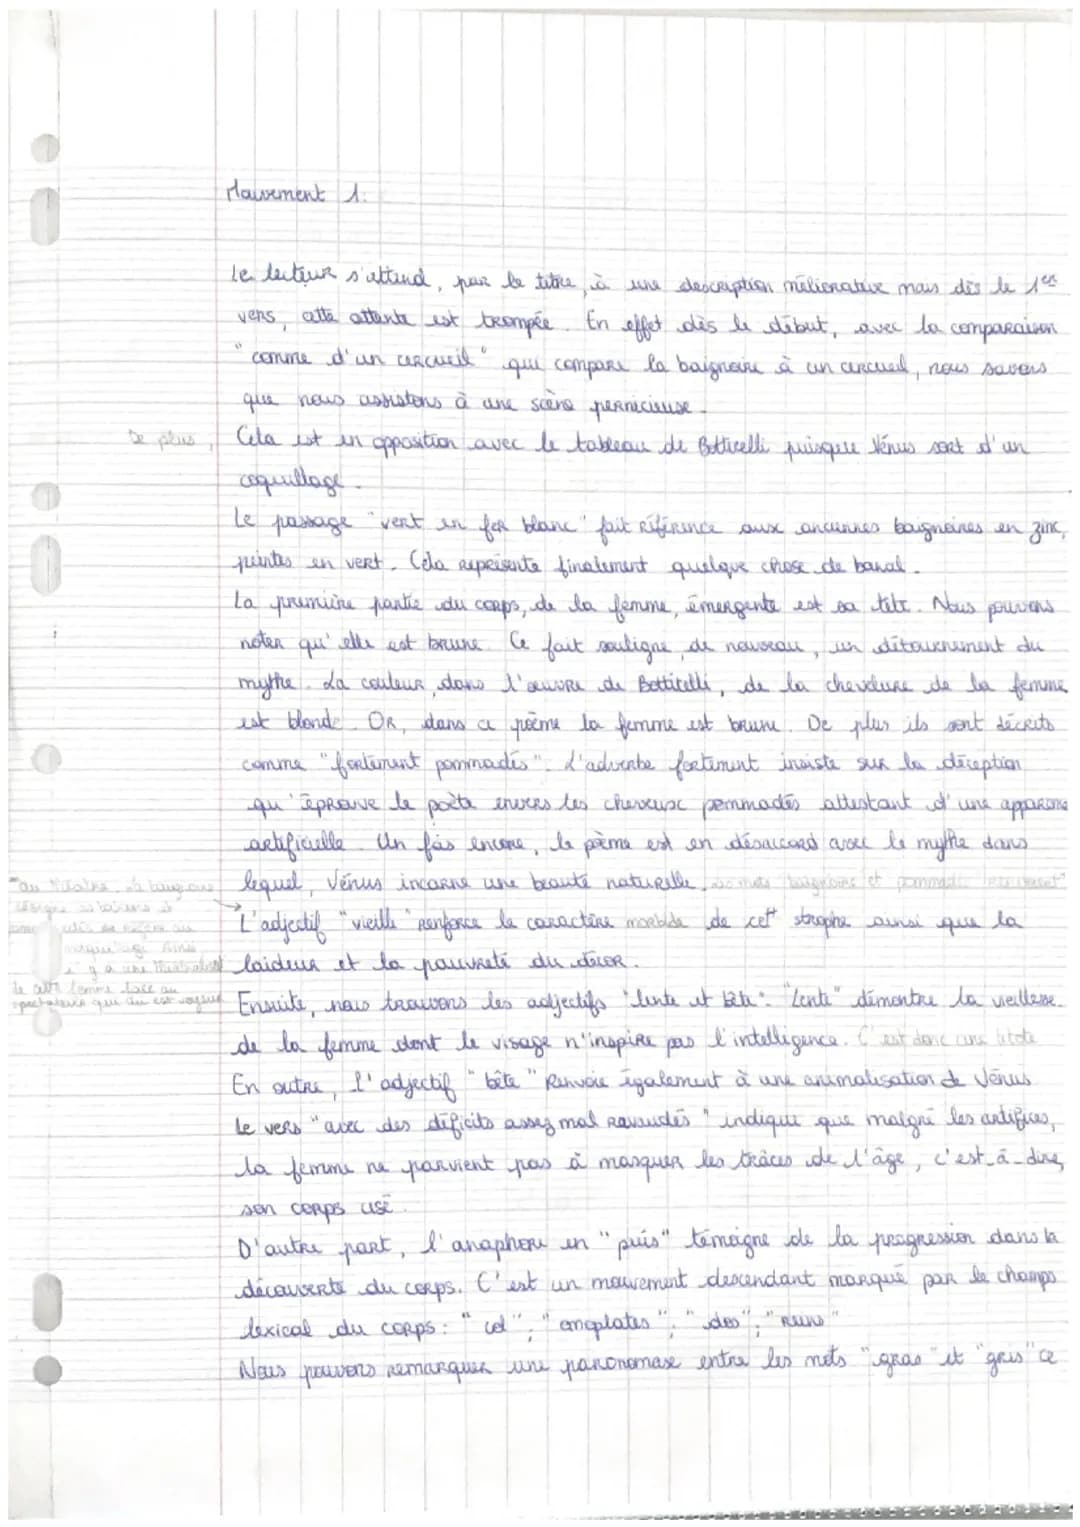 Mouvement 1:
Le lecteur s'attend, par le titre, à une description méliorative mais dès le 1er
vers, cette attente est trompée. En effet dès le début, avec la comparaison
"comme d'un cercueil" qui compare la baignoire à un cercueil, nous savons
que nous assistons à une scène pernicieuse.
De plus, Cela est en opposition avec le tableau de Botticelli puisque Vénus sort d'un
coquillage.
Le passage "vert en fer blanc" fait référence aux anciennes baignoires en zinc,
peintes en vert. Cela représente finalement quelque chose de banal.
La première partie du corps, de la femme, émergente est sa tête. Nous pouvons
noter qu'elle est brune. Ce fait souligne, de nouveau, un détournement du
mythe. La couleur, dans l'œuvre de Botticelli, de la chevelure de la femme
est blonde. Or, dans ce poème la femme est brune. De plus ils sont décrits
comme "fortement pommadés". L'adverbe fortement insiste sur la déception
qu'éprouve le poète envers les cheveux pommadés attestant d'une apparence
artificielle. Un fois encore, le poème est en désaccord avec le mythe dans
lequel, Vénus incarne une beauté naturelle, les mots "baignoire et pommad
L'adjectif "vieille" renforce le caractère morbide de cet strophe ainsi que la
laideur et la pauvreté du décor.
de cette femme face au
spectateur qui en est voyeur
Ensuite, nous trouvons les adjectifs "lente et bête": "Lente" démontre la vieillesse
de la femme dont le visage n'inspire pas l'intelligence. C'est donc une litote
En outre, l'adjectif "bête" renvoie également à une animalisation de Vénus
Le vers "avec des déficits assez mal ravaudés" indique que malgré les artifices,
la femme ne parvient pas à masquer les trâces de l'âge, c'est-à-dire,
son corps usé.
D'autre part, l'anaphore en "puis" témoigne de la progression dans la
découverte du corps. C'est un mouvement descendant marqué par le champs
lexical du corps: "col"; "omoplates"; "dos"; "reins"
Nous pouvons remarquer une paronomase entre les mots "gras" et "gris" ce